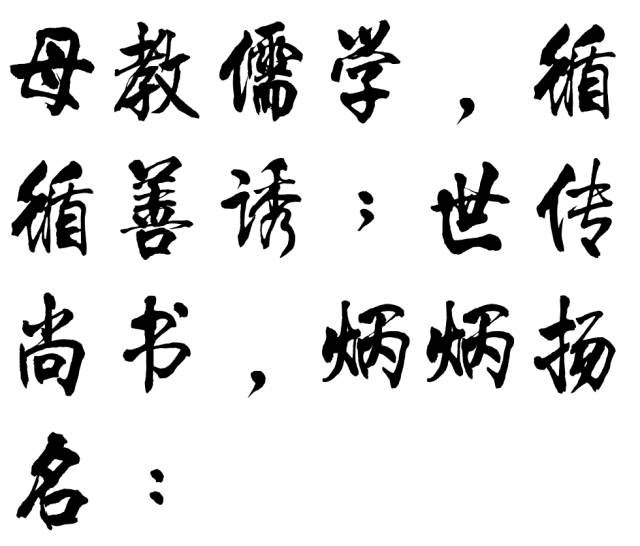 母教儒学，循
循善诱；世传
尚书，炳炳扬
名：